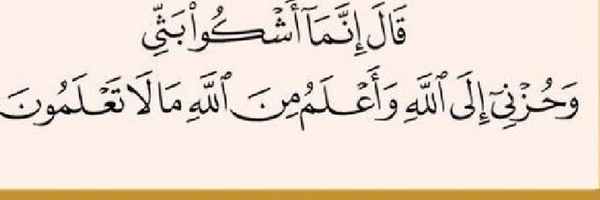 قَالَ إِنَّمَآ أَشْكُوا۟ بَثِّى
وَحُزْنِىٓ إِلَى ٱللَّهِ وَأَعْلَمُ مِنَ ٱللَّهِ مَا لَا تَعْلَمُونَ